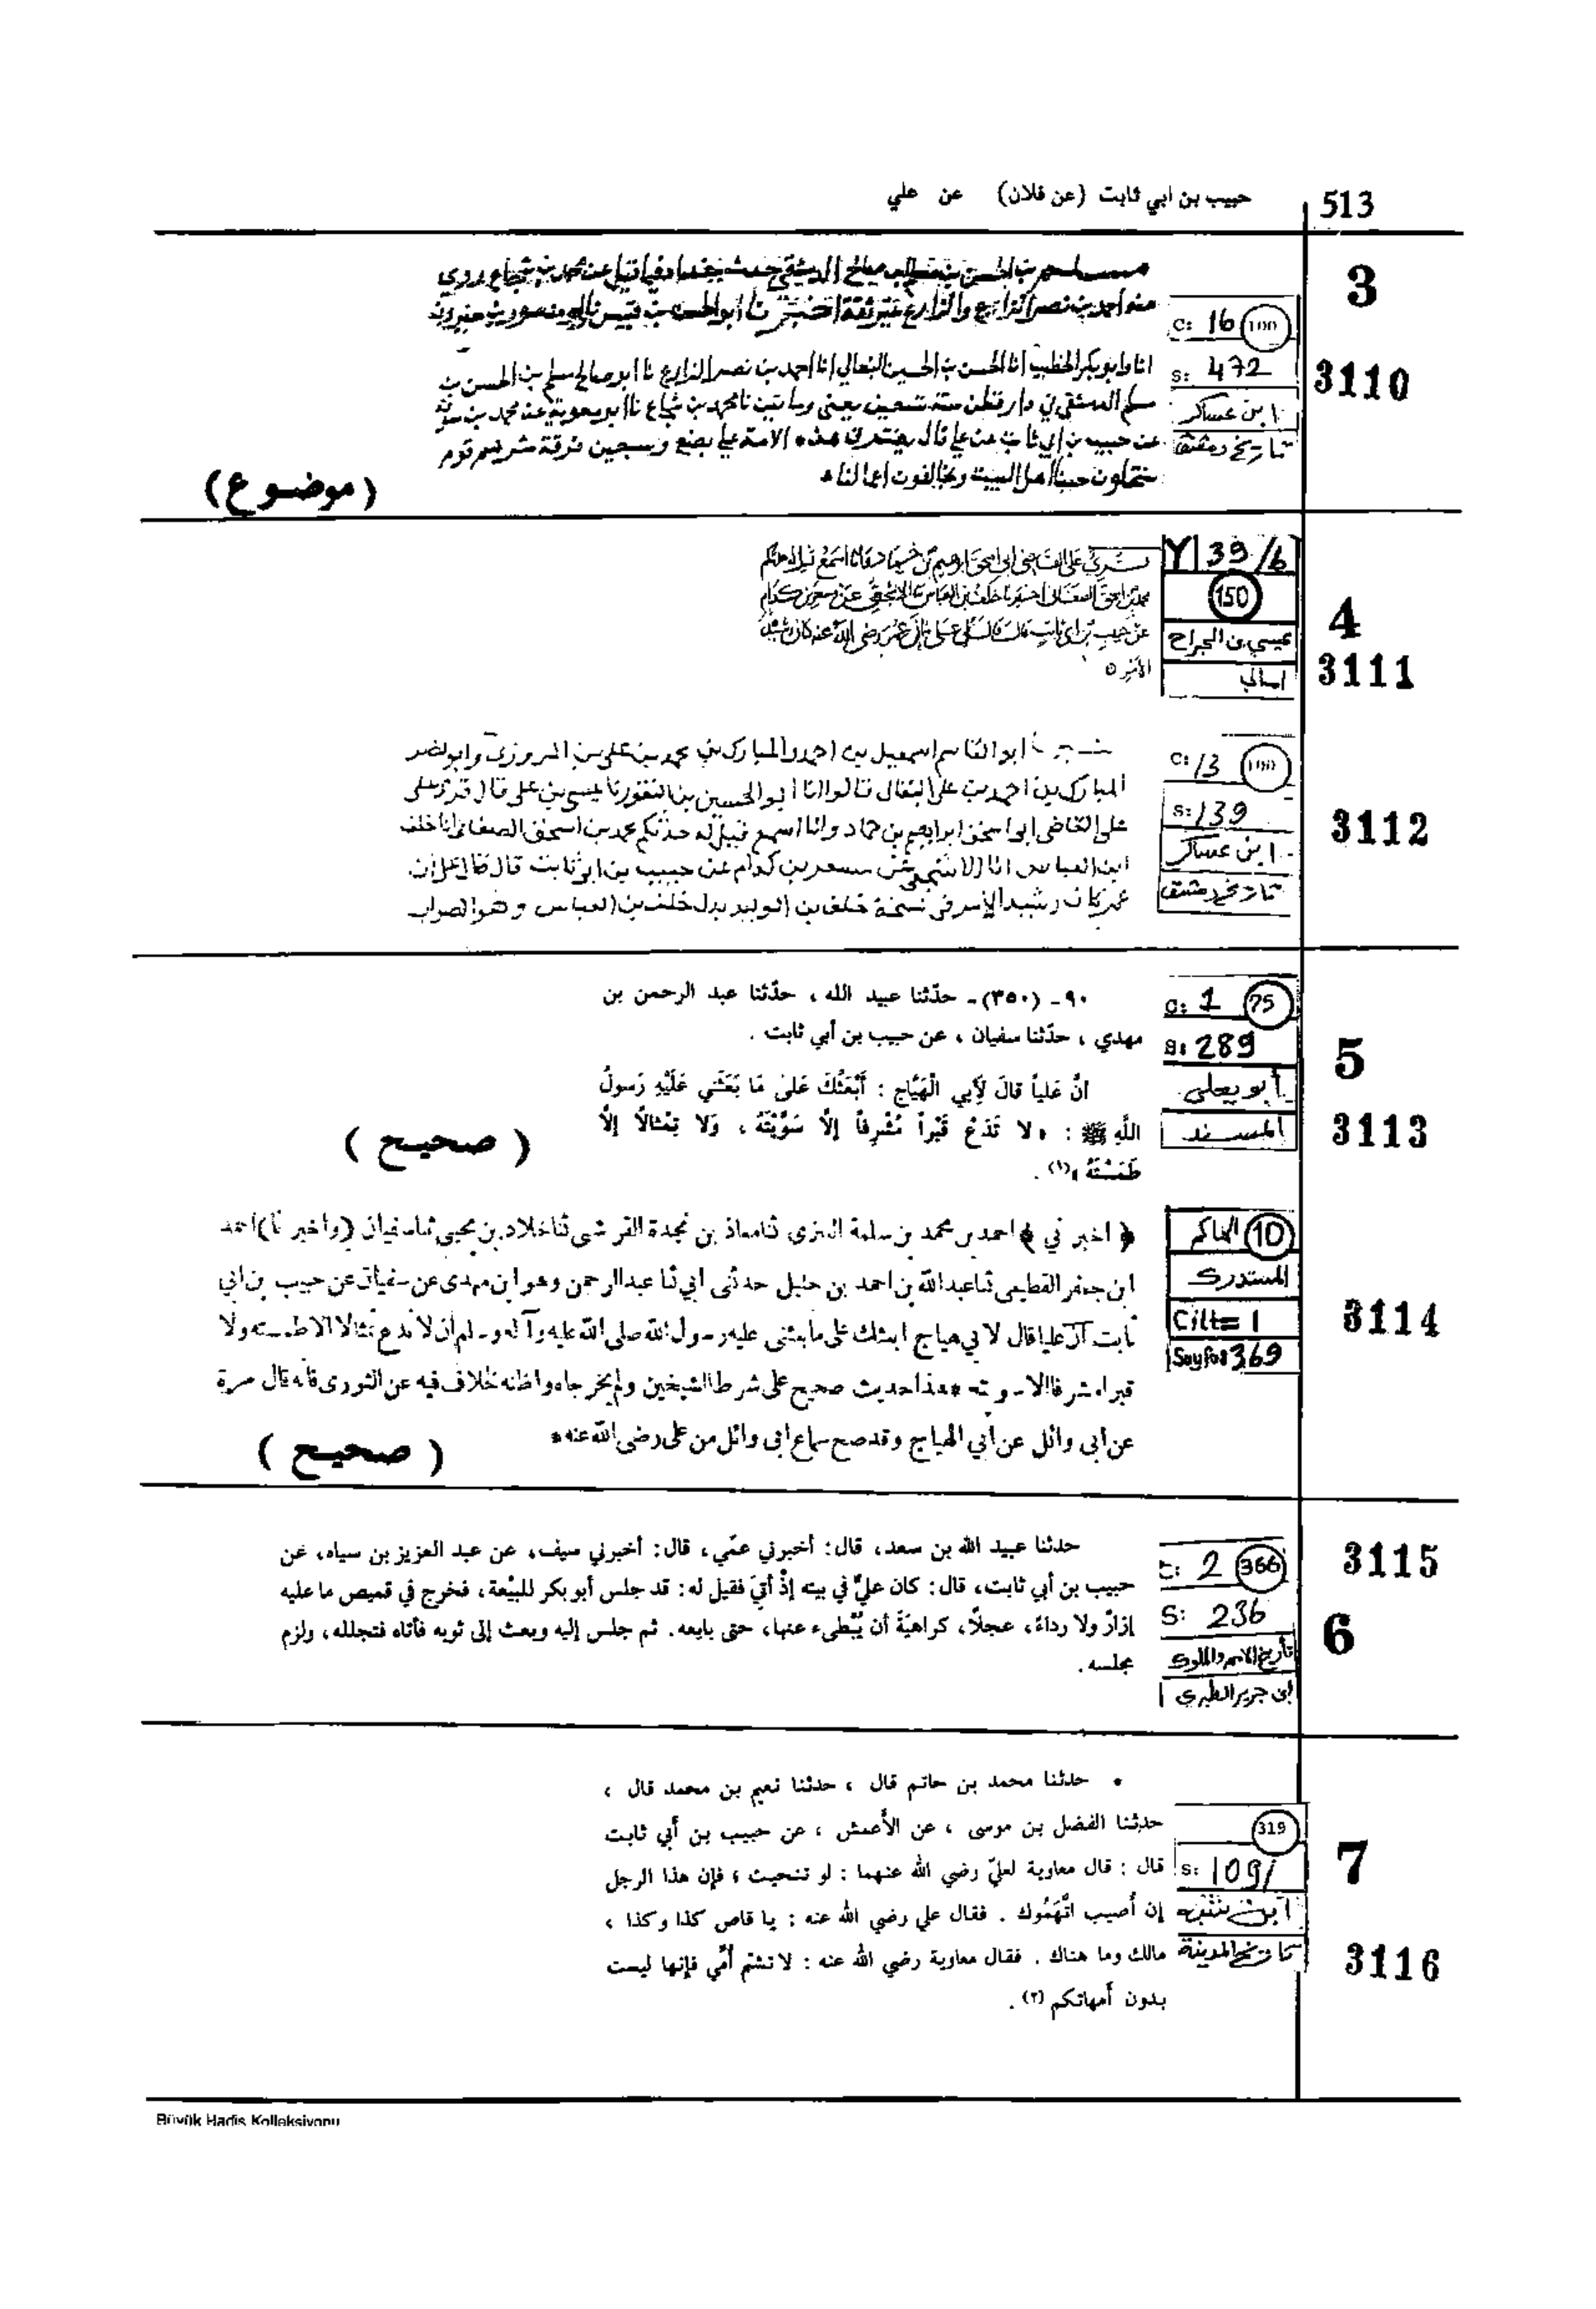 حبيب بن ابي ثابت (عن فلان) عن علي
513
3
C: 16 100
S: 472
ابن عساكر
تاريخ دمشق
3110
انا وابو بكر الخطيب انا الحسن بن الحسين النعالي انا احمد بن نصر الذارع نا ابو صالح مسلم بن الحسن بن
مسلم الدمشقي في دار قطن سنة تسعين يعني ومايتين نا محمد بن شجاع نا ابو معوية عن محمد بن سوقة
عن حبيب بن ابي ثابت عن علي قال يفترق هذه الامة علي بضع وسبعين فرقة شرهم قوم
ينتحلون حبنا اهل البيت ويخالفون اعمالنا
(موضوع)
Y 39/b
150
عيسي بن الجراح
امالي
4
3111
محمد بن اسحق الصغاني اخبرنا خلف بن العباس نا الاشجعي عن مسعر بن كدام
عن حبيب بن ابي ثابت قال قال علي ان عمر رضي الله عنه كان رشيد
الأمر
C: 13 100
S: 139
ابن عساكر
تاريخ دمشق
3112
ابو القاسم اسمعيل بن احمد والمبارك بن محمد بن علي بن المروزي وابو نصر
المبارك بن احمد بن علي البقال قالوا انا ابو الحسين بن النقور نا عيسى بن علي قال قرئ على
على القاضي ابو اسحق ابراهيم بن حماد وانا اسمع قيل له حدثكم محمد بن اسحق الصغاني انا خلف
ابن العباس انا الاشجعي عن مسعر بن كدام عن حبيب بن ابي ثابت قال قال علي ان
عمر كان رشيد الأمر في نسخة خلف بن الوليد بدل خلف بن العباس وهو الصواب
C: 1 75
S: 289
أبو يعلى
المسند
5
3113
٩٠ - (٣٥٠) - حدّثنا عبيد الله ، حدّثنا عبد الرحمن بن
مهدي ، حدّثنا سفيان ، عن حبيب بن أبي ثابت .
انَّ عَلياً قالَ لأَبِي الْهَيَّاجِ : أَبْعَثُكَ عَلَىٰ مَا بَعَثَنِي عَلَيْهِ رَسولُ
اللَّهِ ﷺ : « لا تَدَعْ قَبْراً مُشْرِفاً إِلَّا سَوَّيْتَهُ ، وَلَا تِمْثالاً إِلَّا
طَمَسْتَهُ »(١) .
( صحيح )
الحاكم 10
المستدرك
Cilt= 1
Sayfa: 369
3114
﴿ اخبرني ﴾ احمد بن محمد بن سلمة العنزى ثنا معاذ بن نجدة القرشى ثنا خلاد بن يحيى ثنا سفيان (واخبرنا) احمد
ابن جعفر القطيعى ثنا عبد الله بن احمد بن حنبل حدثنى ابي ثنا عبد الرحمن وهو ابن مهدى عن سفيان عن حبيب بن ابي
ثابت ان عليا قال لابي هياج ابعثك على ما بعثنى عليه رسول الله صلى الله عليه وآله وسلم ان لا تدع تمثالا الا طمسته ولا
قبرا مشرفا الا سويته * هذا حديث صحيح على شرط الشيخين ولم يخرجاه واظنه لخلاف فيه عن الثورى فانه قال مرة
عن ابى وائل عن أبي الهياج وقد صح سماع ابى وائل من على رضى الله عنه *
( صحيح )
C: 2 366
S: 236
تأريخ الامم والملوك
ابن جرير الطبري
3115
6
حدثنا عبيد الله بن سعد، قال: أخبرني عمّي، قال: أخبرني سيف، عن عبد العزيز بن سياه، عن
حبيب بن أبي ثابت، قال: كان عليّ في بيته إذْ أُتِيَ فقيل له: قد جلس أبو بكر للبيْعة، فخرج في قميص ما عليه
إزارٌ ولا رداءٌ، عجلاً، كراهيَةَ أن يُبْطىء عنها، حتى بايعه. ثم جلس إليه وبعث إلى ثوبه فأتاه فتجلله، ولزم
مجلسه.
319
S: 1091
ابن شبه
تاريخ المدينة
7
3116
• حدثنا محمد بن حاتم قال ، حدثنا نعيم بن محمد قال ،
حدثنا الفضل بن موسى ، عن الأَعمش ، عن حبيب بن أبي ثابت
قال : قال معاوية لعليّ رضي الله عنهما : لو تنحيت ، فإن هذا الرجل
إن أُصيب اتَّهَمُوك . فقال علي رضي الله عنه : يا قاص كذا وكذا ،
مالك وما هناك . فقال معاوية رضي الله عنه : لا تشتم أُمِّي فإنها ليست
بدون أُمهاتكم (٢) .
Büyük Hadis Kolleksiyonu